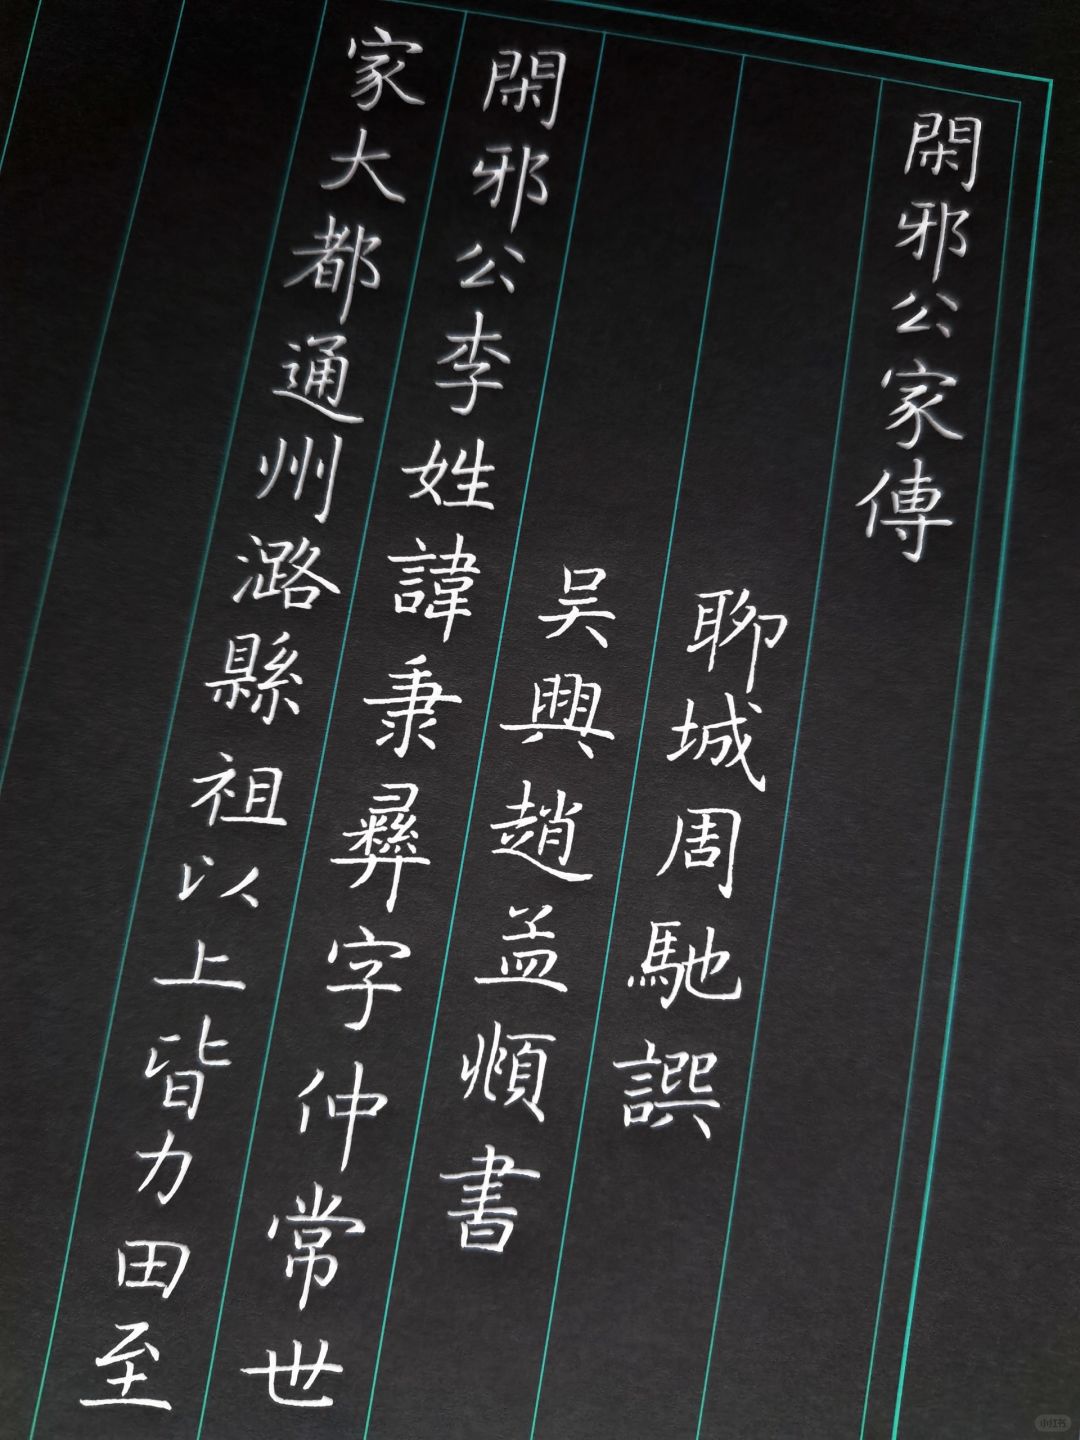 閑邪公家傳
聊城周馳譔
吴興趙孟頫書
閑邪公李姓諱秉彝字仲常世
家大都通州潞縣祖以上皆力田至
小红书